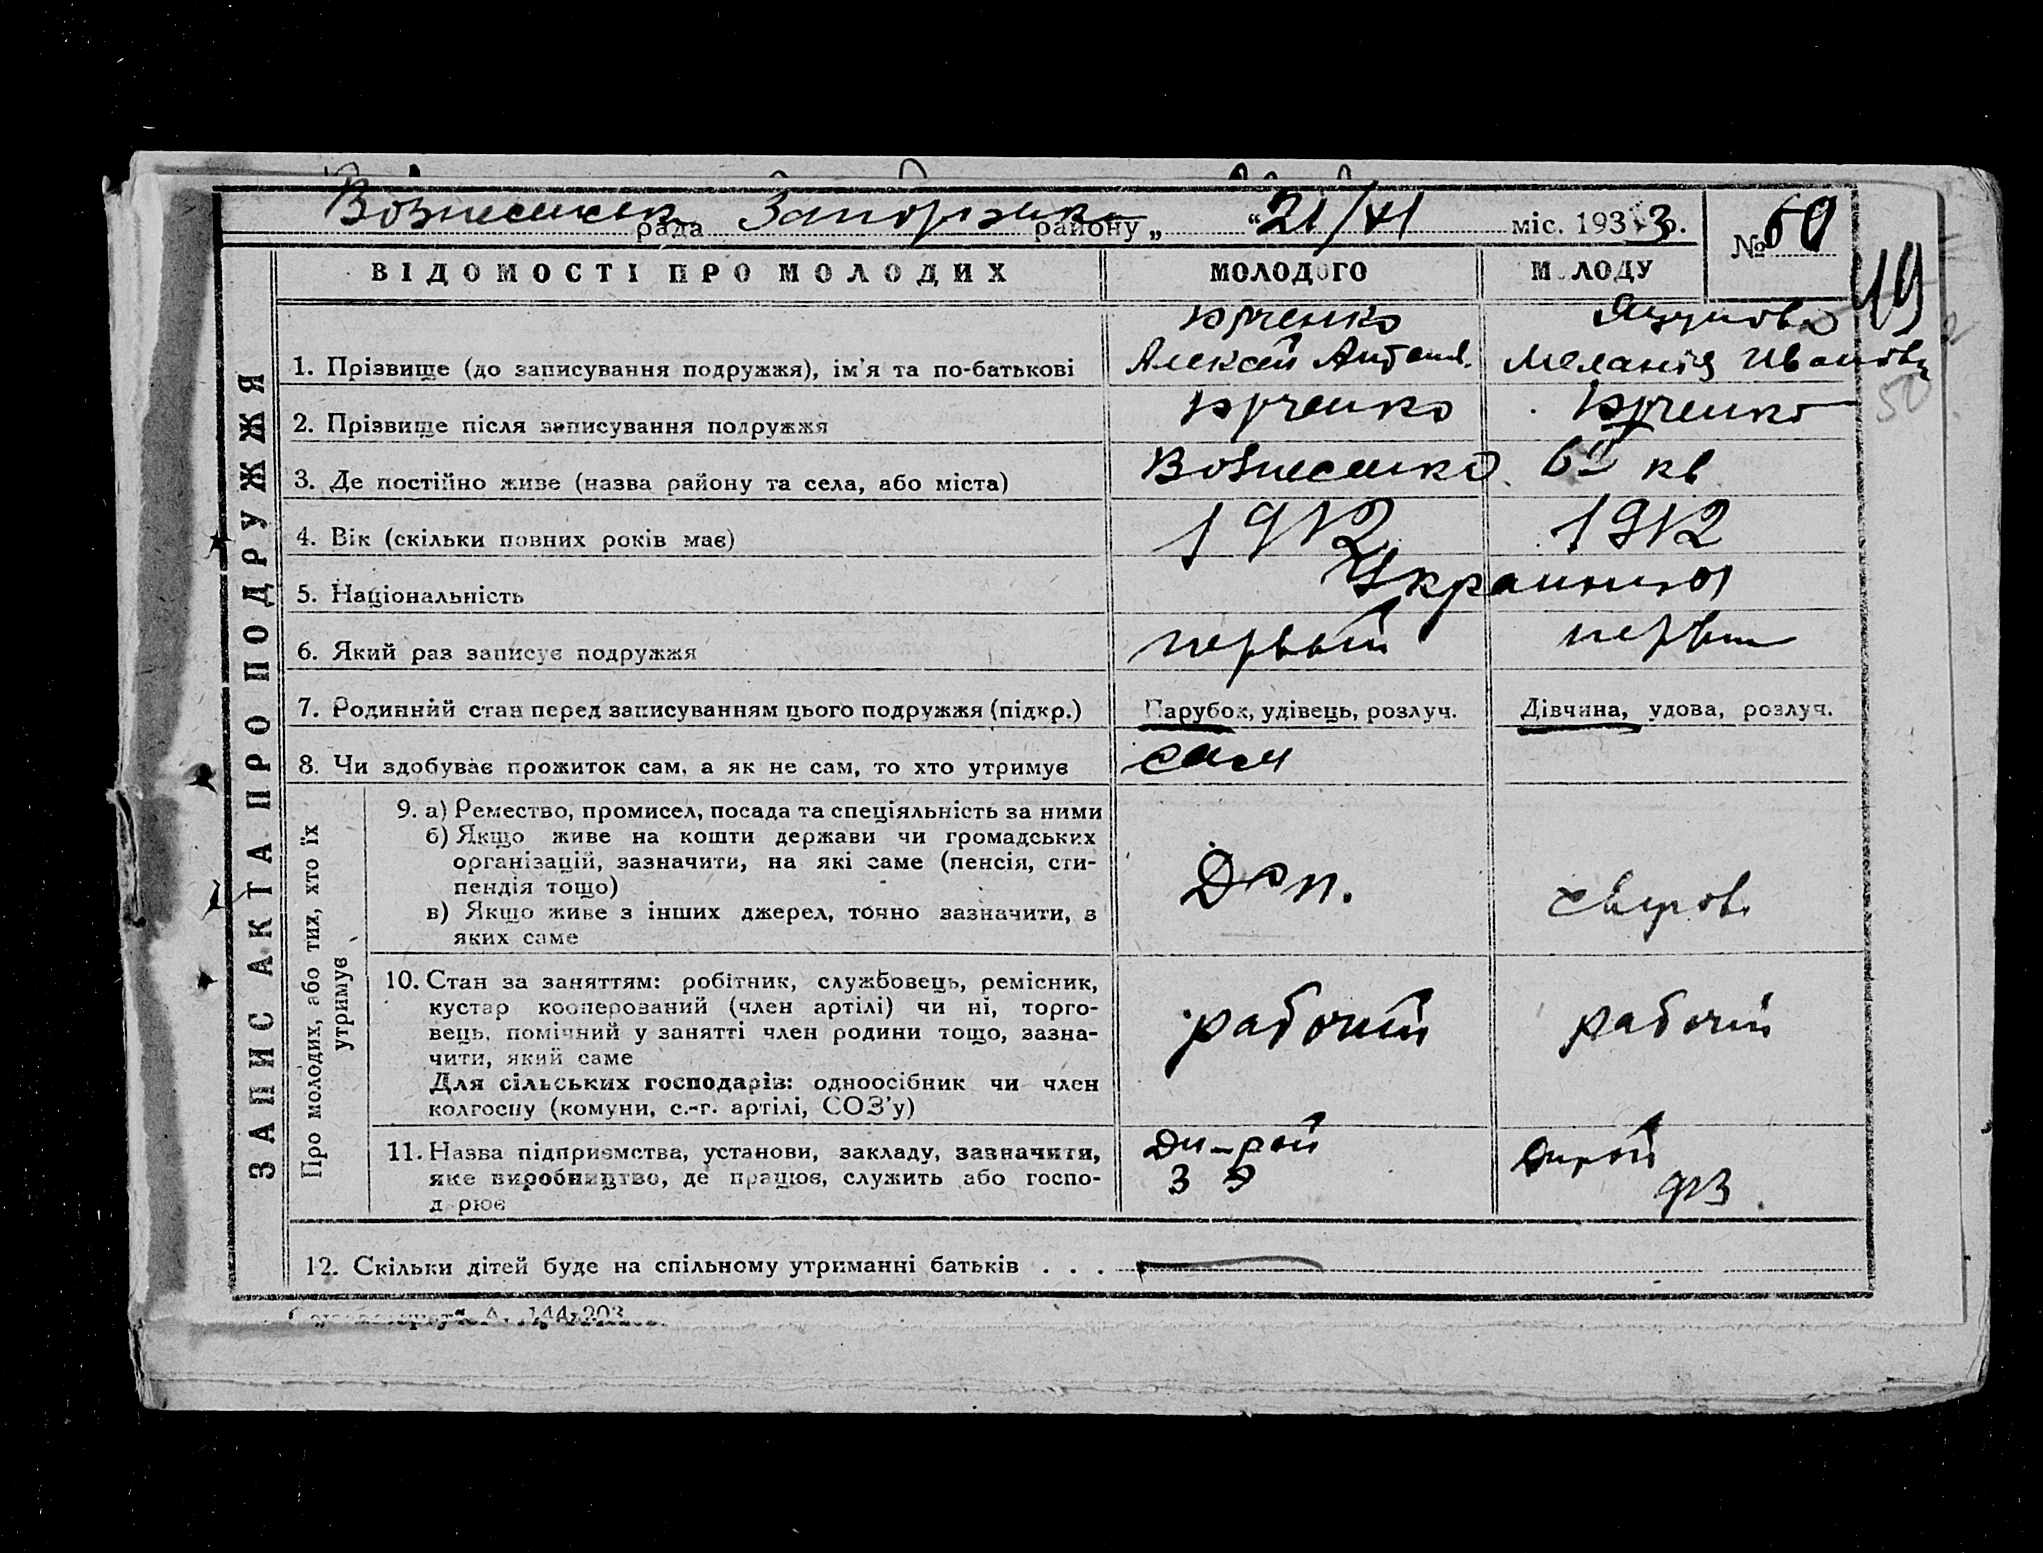 Вознесенск рада Запорізька району „ “21/VI міс. 1933 р. № 60
19
ВІДОМОСТІ ПРО МОЛОДИХ МОЛОДОГО МОЛОДУ
ЗАПИС АКТА ПРО ПОДРУЖЖЯ
Юрченко
1. Прізвище (до записування подружжя), ім'я та по-батькові Алексей Антонов. Мелания Ивановн
2. Прізвище після записування подружжя Юрченко Юрченко
50
3. Де постійно живе (назва району та села, або міста) Вознесенка 6й кв
4. Вік (скільки повних років має) 1912 1912
5. Національність Украинцы
6. Який раз записує подружжя первый первый
7. Родинний стан перед записуванням цього подружжя (підкр.) Парубок, удівець, розлуч. Дівчина, удова, розлуч.
8. Чи здобуває прожиток сам, а як не сам, то хто утримує сам
Про молодих, або тих, хто їх утримує
9. а) Ремество, промисел, посада та спеціяльність за ними
б) Якщо живе на кошти держави чи громадських
організацій, зазначити, на які саме (пенсія, сти-
пендія тощо)
в) Якщо живе з інших джерел, точно зазначити, з
яких саме
10. Стан за заняттям: робітник, службовець, ремісник,
кустар кооперований (член артілі) чи ні, торго-
вець, помічний у занятті член родини тощо, зазна-
чити, який саме
Для сільських господарів: одноосібник чи член
колгоспу (комуни, с.-г. артілі, СОЗ'у)
рабочий рабочий
11. Назва підприємства, установи, закладу, зазначити,
яке виробництво, де працює, служить або госпо-
дорює
12. Скільки дітей буде на спільному утриманні батьків . . .